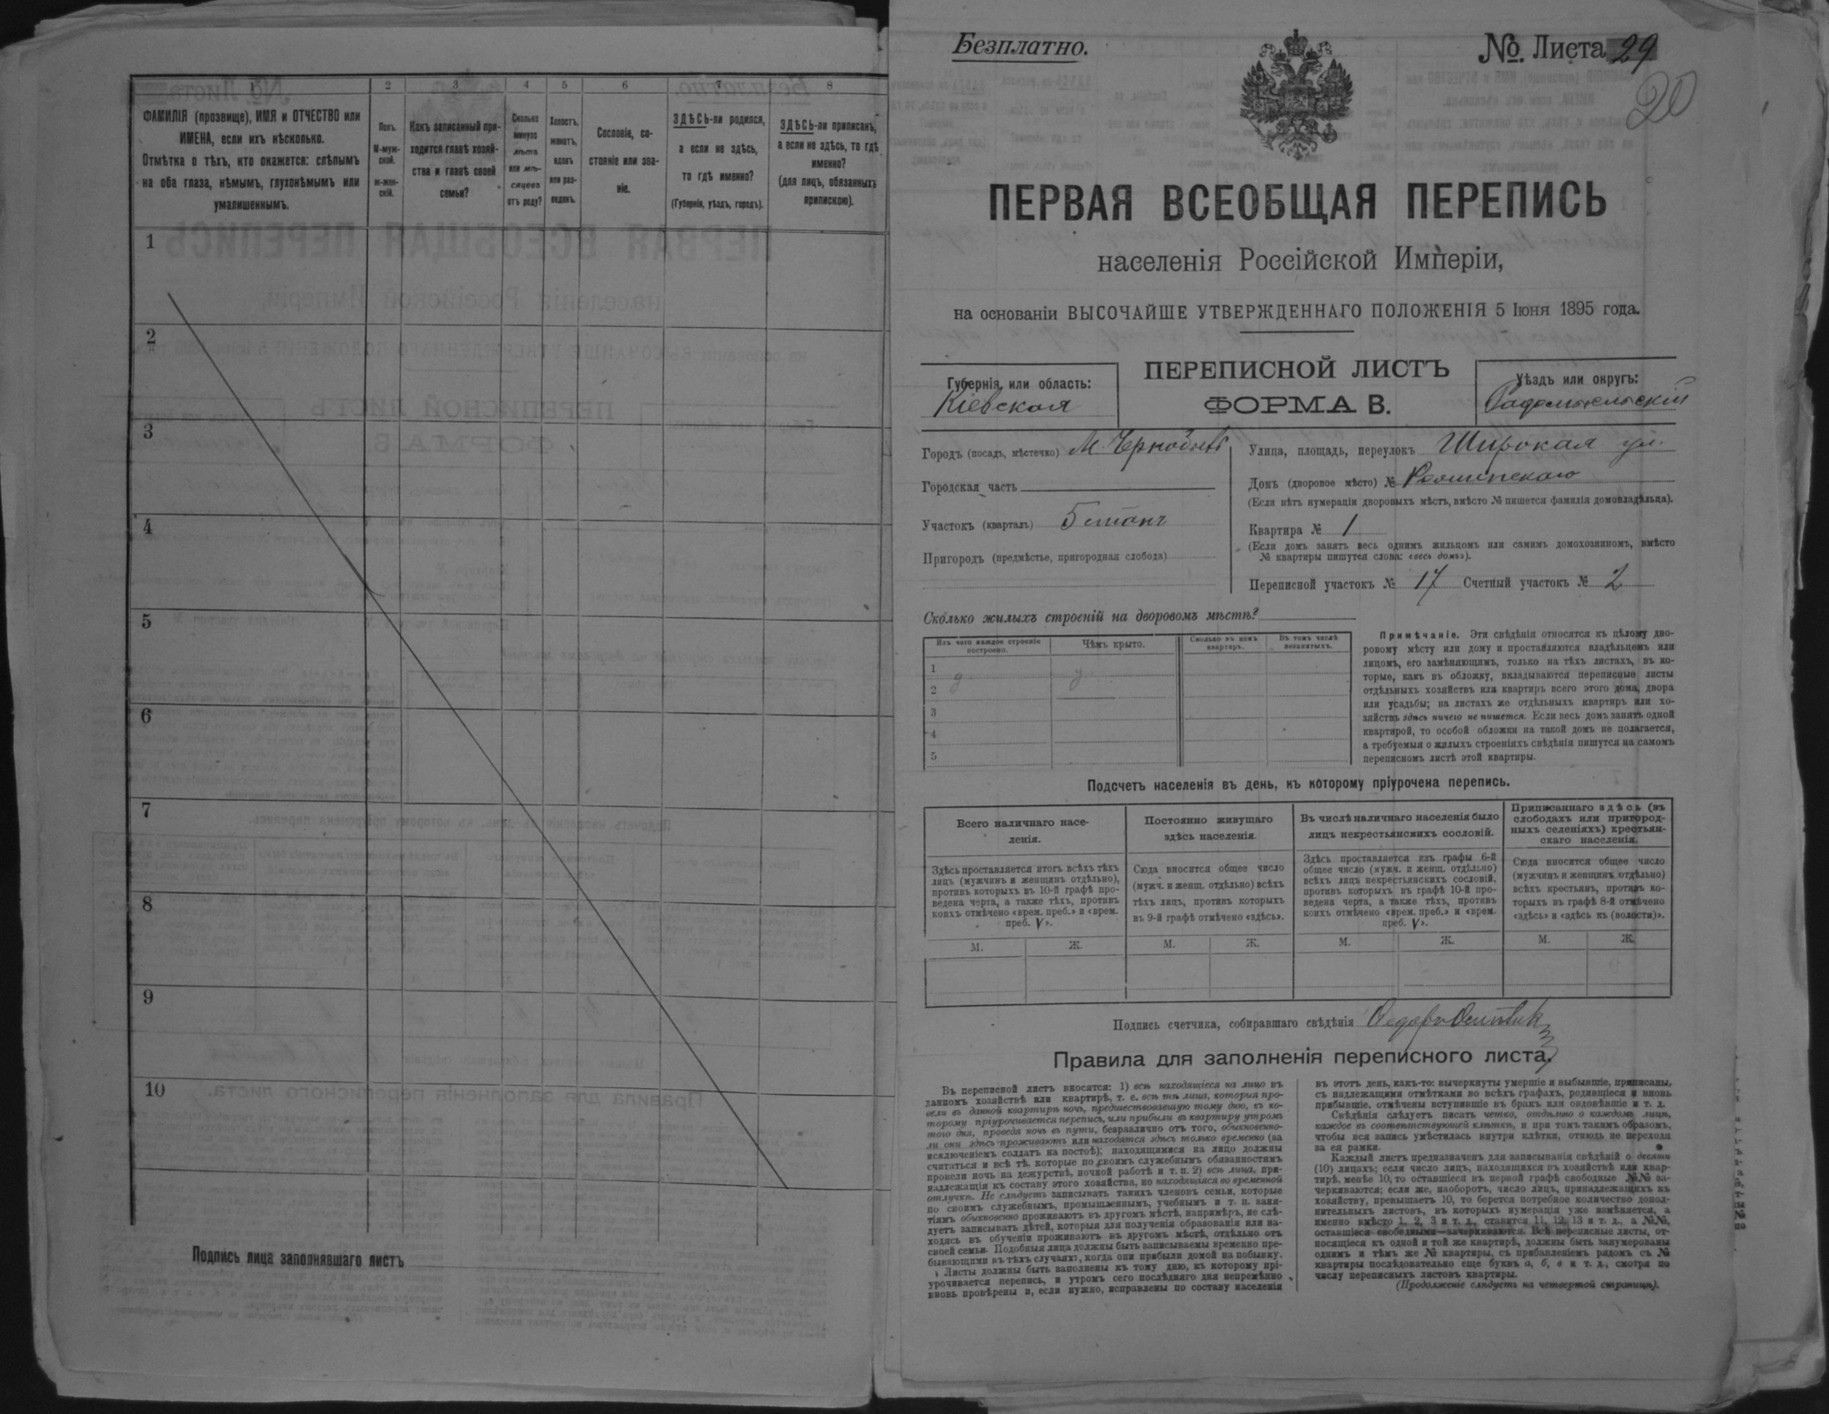 1 2 3 4 5 6 7 8
ФАМИЛІЯ (прозвище), ИМЯ и ОТЧЕСТВО или
ИМЕНА, если ихъ нѣсколько.
Отмѣтка о тѣхъ, кто окажется: слѣпымъ
на оба глаза, нѣмымъ, глухонѣмымъ или
умалишеннымъ.
Полъ.
М-муж-
ской.
ж-жен-
скій.
Какъ записанный при-
ходится главѣ хозяй-
ства и главѣ своей
семьи?
Сколько
минуло
лѣтъ
или мѣ-
сяцевъ
отъ роду?
Холостъ,
женатъ,
вдовъ
или раз-
веденъ.
Сословіе, со-
стояніе или зва-
ніе.
ЗДѢСЬ-ли родился,
а если не здѣсь,
то гдѣ именно?
(Губернія, уѣздъ, городъ).
ЗДѢСЬ-ли приписанъ,
а если не здѣсь, то гдѣ
именно?
(для лицъ, обязанныхъ
припискою).
1
2
3
4
5
6
7
8
9
10
Подпись лица заполнявшаго листъ
Безплатно.
№. Листа 29
20
ПЕРВАЯ ВСЕОБЩАЯ ПЕРЕПИСЬ
населенія Россійской Имперіи,
на основаніи ВЫСОЧАЙШЕ УТВЕРЖДЕННАГО ПОЛОЖЕНІЯ 5 Іюня 1895 года.
Губернія или область:
Кіевская
ПЕРЕПИСНОЙ ЛИСТЪ
ФОРМА В.
Уѣздъ или округъ:
Радомысльскій
Городъ (посадъ, мѣстечко) М. Чернобыль
Городская часть
Участокъ (кварталъ) 5 станъ
Пригородъ (предмѣстье, пригородная слобода)
Улица, площадь, переулокъ Широкая ул.
Домъ (дворовое мѣсто) №
(Если нѣтъ нумераціи дворовыхъ мѣстъ, вмѣсто № пишется фамилія домовладѣльца).
Квартира № 1
(Если домъ занятъ весь однимъ жильцомъ или самимъ домохозяиномъ, вмѣсто
№ квартиры пишутся слова: «весь домъ»).
Переписной участокъ № 17 Счетный участокъ № 2
Сколько жилыхъ строеній на дворовомъ мѣстѣ?
Изъ чего каждое строеніе
построено.
Чѣмъ крыто.
Сколько въ немъ
квартиръ.
Въ томъ числѣ
незанятыхъ.
1
2
3
4
5
Примѣчаніе. Эти свѣдѣнія относятся къ цѣлому дво-
ровому мѣсту или дому и проставляются владѣльцемъ или
лицомъ, его замѣняющимъ, только на тѣхъ листахъ, въ ко-
торые, какъ въ обложку, вкладываются переписные листы
отдѣльныхъ хозяйствъ или квартиръ всего этого дома, двора
или усадьбы; на листахъ же отдѣльныхъ квартиръ или хо-
зяйствъ здѣсь ничего не пишется. Если весь домъ занятъ одной
квартирой, то особой обложки на такой домъ не полагается,
а требуемыя о жилыхъ строеніяхъ свѣдѣнія пишутся на самомъ
переписномъ листѣ этой квартиры.
Подсчетъ населенія въ день, къ которому пріурочена перепись.
Всего наличнаго насе-
ленія.
Постоянно живущаго
здѣсь населенія.
Въ числѣ наличнаго населенія было
лицъ некрестьянскихъ сословій.
Приписаннаго здѣсь (въ
слободахъ или пригород-
ныхъ селеніяхъ) крестьян-
скаго населенія.
Здѣсь проставляется итогъ всѣхъ тѣхъ
лицъ (мужчинъ и женщинъ отдѣльно),
противъ которыхъ въ 10-й графѣ про-
ведена черта, а также тѣхъ, противъ
коихъ отмѣчено «врем. преб.» и «врем.
преб. V».
Сюда вносится общее число
(мужч. и женщ. отдѣльно) всѣхъ
тѣхъ лицъ, противъ которыхъ
въ 9-й графѣ отмѣчено «здѣсь».
Здѣсь проставляется изъ графы 6-й
общее число (мужч. и женщ. отдѣльно)
всѣхъ лицъ некрестьянскихъ сословій,
противъ которыхъ въ графѣ 10-й про-
ведена черта, а также тѣхъ, противъ
коихъ отмѣчено «врем. преб.» и «врем.
преб. V».
Сюда вносится общее число
(мужчинъ и женщинъ отдѣльно)
всѣхъ крестьянъ, противъ ко-
торыхъ въ графѣ 8-й отмѣчено
«здѣсь» и «здѣсь къ (волости)».
М. Ж. М. Ж. М. Ж. М. Ж.
Подпись счетчика, собиравшаго свѣдѣнія
Правила для заполненія переписного листа.
Въ переписной листъ вносятся: 1) всѣ находящіеся на лицо въ
данномъ хозяйствѣ или квартирѣ, т. е. всѣ тѣ лица, которыя про-
вели въ данной квартирѣ ночь, предшествовавшую тому дню, къ ко-
торому пріурочивается перепись, или прибыли въ квартиру утромъ
того дня, проведя ночь въ пути, безразлично отъ того, обыкновенно-
ли они здѣсь проживаютъ или находятся здѣсь только временно (за
исключеніемъ солдатъ на постоѣ); находящимися на лицо должны
считаться и всѣ тѣ, которые по своимъ служебнымъ обязанностямъ
провели ночь на дежурствѣ, ночной работѣ и т. п. 2) всѣ лица, при-
надлежащія къ составу этого хозяйства, но находящіяся во временной
отлучкѣ. Не слѣдуетъ записывать такихъ членовъ семьи, которые
по своимъ служебнымъ, промышленнымъ, учебнымъ и т. п. заня-
тіямъ обыкновенно проживаютъ въ другомъ мѣстѣ, напримѣръ, не слѣ-
дуетъ записывать дѣтей, которыя для полученія образованія или на-
ходясь въ обученіи проживаютъ въ другомъ мѣстѣ, отдѣльно отъ
своей семьи. Подобныя лица должны быть записываемы временно пре-
бывающими въ тѣхъ случаяхъ, когда они прибыли домой на побывку.
Листы должны быть заполнены къ тому дню, къ которому прі-
урочивается перепись, и утромъ сего послѣдняго дня непремѣнно
вновь провѣрены и, если нужно, исправлены по составу населенія
въ этотъ день, какъ-то: вычеркнуты умершіе и выбывшіе, приписаны,
съ надлежащими отмѣтками во всѣхъ графахъ, родившіеся и вновь
прибывшіе, отмѣчены вступившіе въ бракъ или овдовѣвшіе и т. д.
Свѣдѣнія слѣдуетъ писать четко, отдѣльно о каждомъ лицѣ,
каждое въ соотвѣтствующей клѣткѣ, и при томъ такимъ образомъ,
чтобы вся запись умѣстилась внутри клѣтки, отнюдь не переходя
за ея рамки.
Каждый листъ предназначенъ для записыванія свѣдѣній о десяти
(10) лицахъ; если число лицъ, находящихся въ хозяйствѣ или квар-
тирѣ, менѣе 10, то оставшіеся въ первой графѣ свободные №№ за-
черкиваются; если же, наоборотъ, число лицъ, принадлежащихъ къ
хозяйству, превышаетъ 10, то берется потребное количество допол-
нительныхъ листовъ, въ которыхъ нумерація уже измѣняется, а
именно вмѣсто 1, 2, 3 и т. д., ставится 11, 12, 13 и т. д., а №№,
оставшіеся свободными—зачеркиваются. Всѣ переписные листы, от-
носящіеся къ одной и той же квартирѣ, должны быть занумерованы
однимъ и тѣмъ же № квартиры, съ прибавленіемъ рядомъ съ №
квартиры послѣдовательно еще буквъ а, б, в и т. д., смотря по
числу переписныхъ листовъ квартиры.
(Продолженіе слѣдуетъ на четвертой страницѣ).